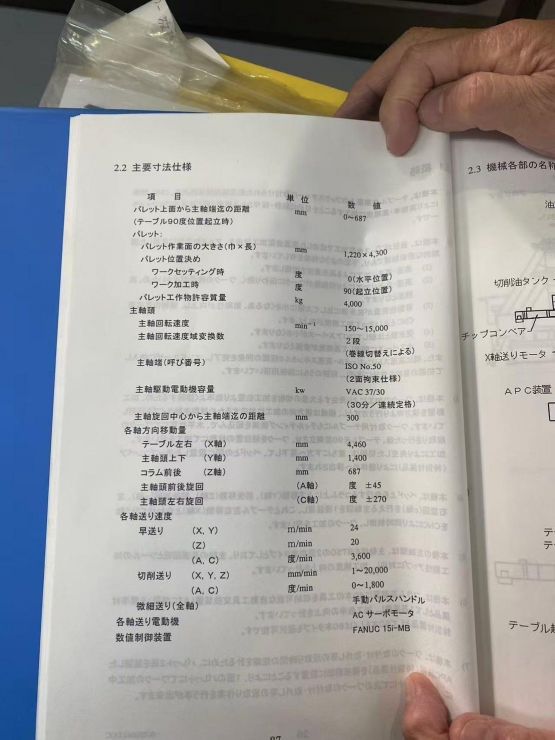 2.2 主要寸法仕様
項 目 単 位 数 値
パレット上面から主軸端迄の距離 mm 0~687
(テーブル90度位置起立時)
パレット:
パレット作業面の大きさ(巾×長) mm 1,220×4,300
パレット位置決め
ワークセッティング時 度 0(水平位置)
ワーク加工時 度 90(起立位置)
パレット工作物許容質量 kg 4,000
主軸頭
主軸回転速度 min⁻¹ 150~15,000
主軸回転速度域変換数 2段
(巻線切替えによる)
主軸端(呼び番号) ISO No.50
(2面拘束仕様)
主軸駆動電動機容量 kw VAC 37/30
(30分/連続定格)
主軸旋回中心から主軸端迄の距離 mm 300
各軸方向移動量
テーブル左右 (X軸) mm 4,460
主軸頭上下 (Y軸) mm 1,400
コラム前後 (Z軸) mm 687
主軸頭前後旋回 (A軸) 度 ±45
主軸頭左右旋回 (C軸) 度 ±270
各軸送り速度
早送り (X, Y) m/min 24
(Z) m/min 20
(A, C) 度/min 3,600
切削送り (X, Y, Z) mm/min 1~20,000
(A, C) 度/min 0~1,800
微細送り(全軸) 手動パルスハンドル
各軸送り電動機 AC サーボモータ
数値制御装置 FANUC 15i-MB
2.3 機械各部の名称
切削油タンク
チップコンベアー
X軸送りモータ
APC装置